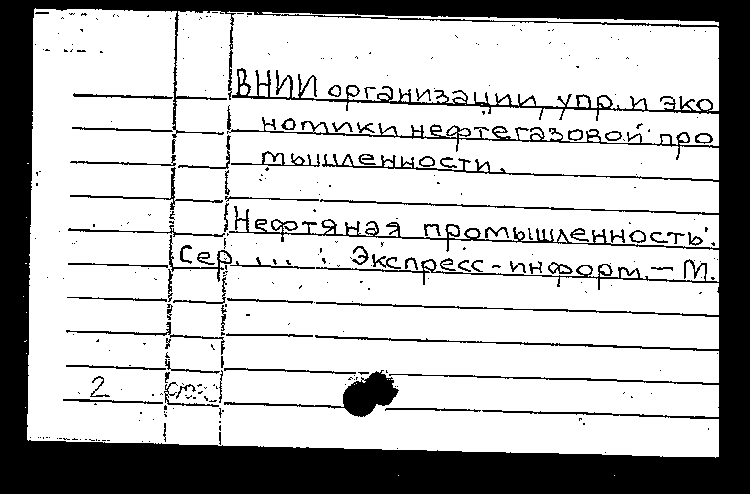 ВНИИ организации, упр. и эко
номики нефтегазовой про
мышленности.
Нефтяная промышленность.
Сер. ... : Экспресс-информ. — М.
2